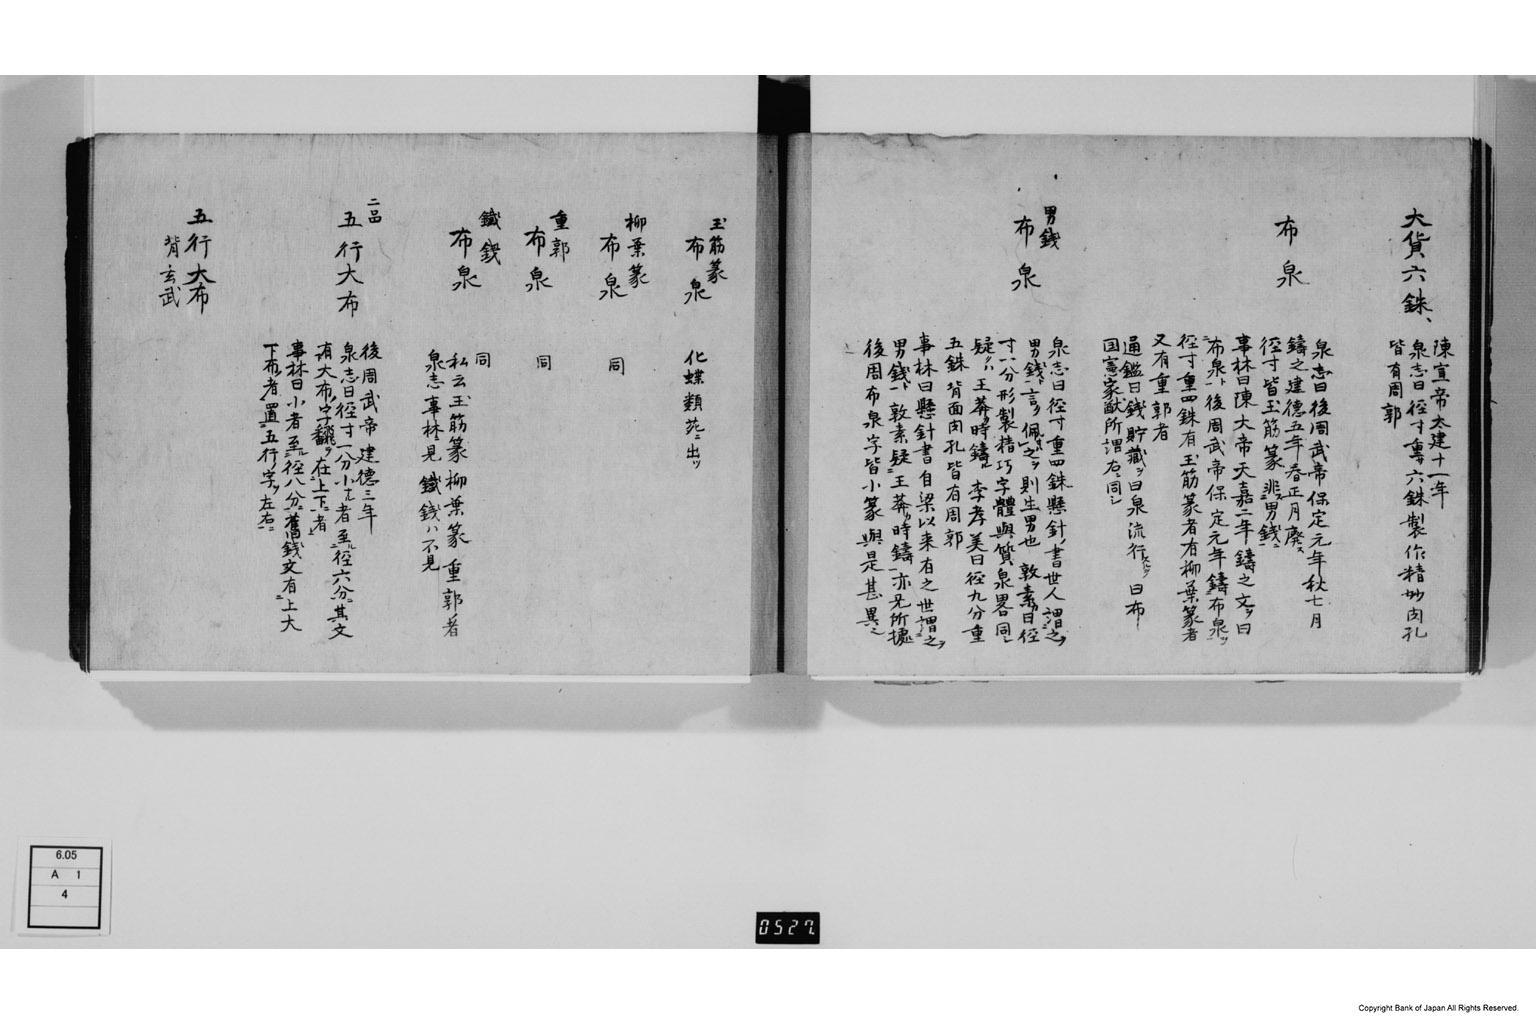 大貨六銖、
陳宣帝太建十一年
泉志曰径寸重六銖製作精妙肉孔
皆有周郭
布泉
泉志曰後周武帝保定元年秋七月
鑄之建德五年春正月廢ス
径寸皆玉筋篆非男錢ニ
事林曰陳大帝天嘉二年鑄之文ヲ曰
布泉ト後周武帝保定元年鑄布泉ヲ
径寸重四銖有玉筋篆者有柳葉篆者
又有重郭者
通鑑曰錢貯藏ヲ曰泉流行ヲ曰布
国憲家猷所謂右ニ同シ
男錢
布泉
泉志曰径寸重四銖懸針書世人謂之ヲ
男錢ト言フ佩之ヲ則生男也敦素曰径
寸一分形製精巧字體與貨泉畧同シ
疑クハ王莽時鑄ル李孝美曰径九分重
五銖背面肉孔皆有周郭
事林曰懸針書自梁以来有之世謂之ヲ
男錢ト敦素疑王莽時鑄亦无所據
後周布泉字皆小篆與是甚異
玉筋篆
布泉
化蝶類苑ニ出ツ
柳葉篆
布泉
同
重郭
布泉
同
鐵錢
布泉
同
私云玉筋篆柳葉篆重郭者
泉志事林見鐵錢ハ不見
二品
五行大布
後周武帝建德三年
泉志曰径寸一分小者至径六分其文
有大布字飜在上下者
事林曰小者至径八分舊錢文有上大
下布者置五行字ヲ左右ニ
五行大布
背玄武
6.05
A 1
4
0527
Copyright Bank of Japan All Rights Reserved.